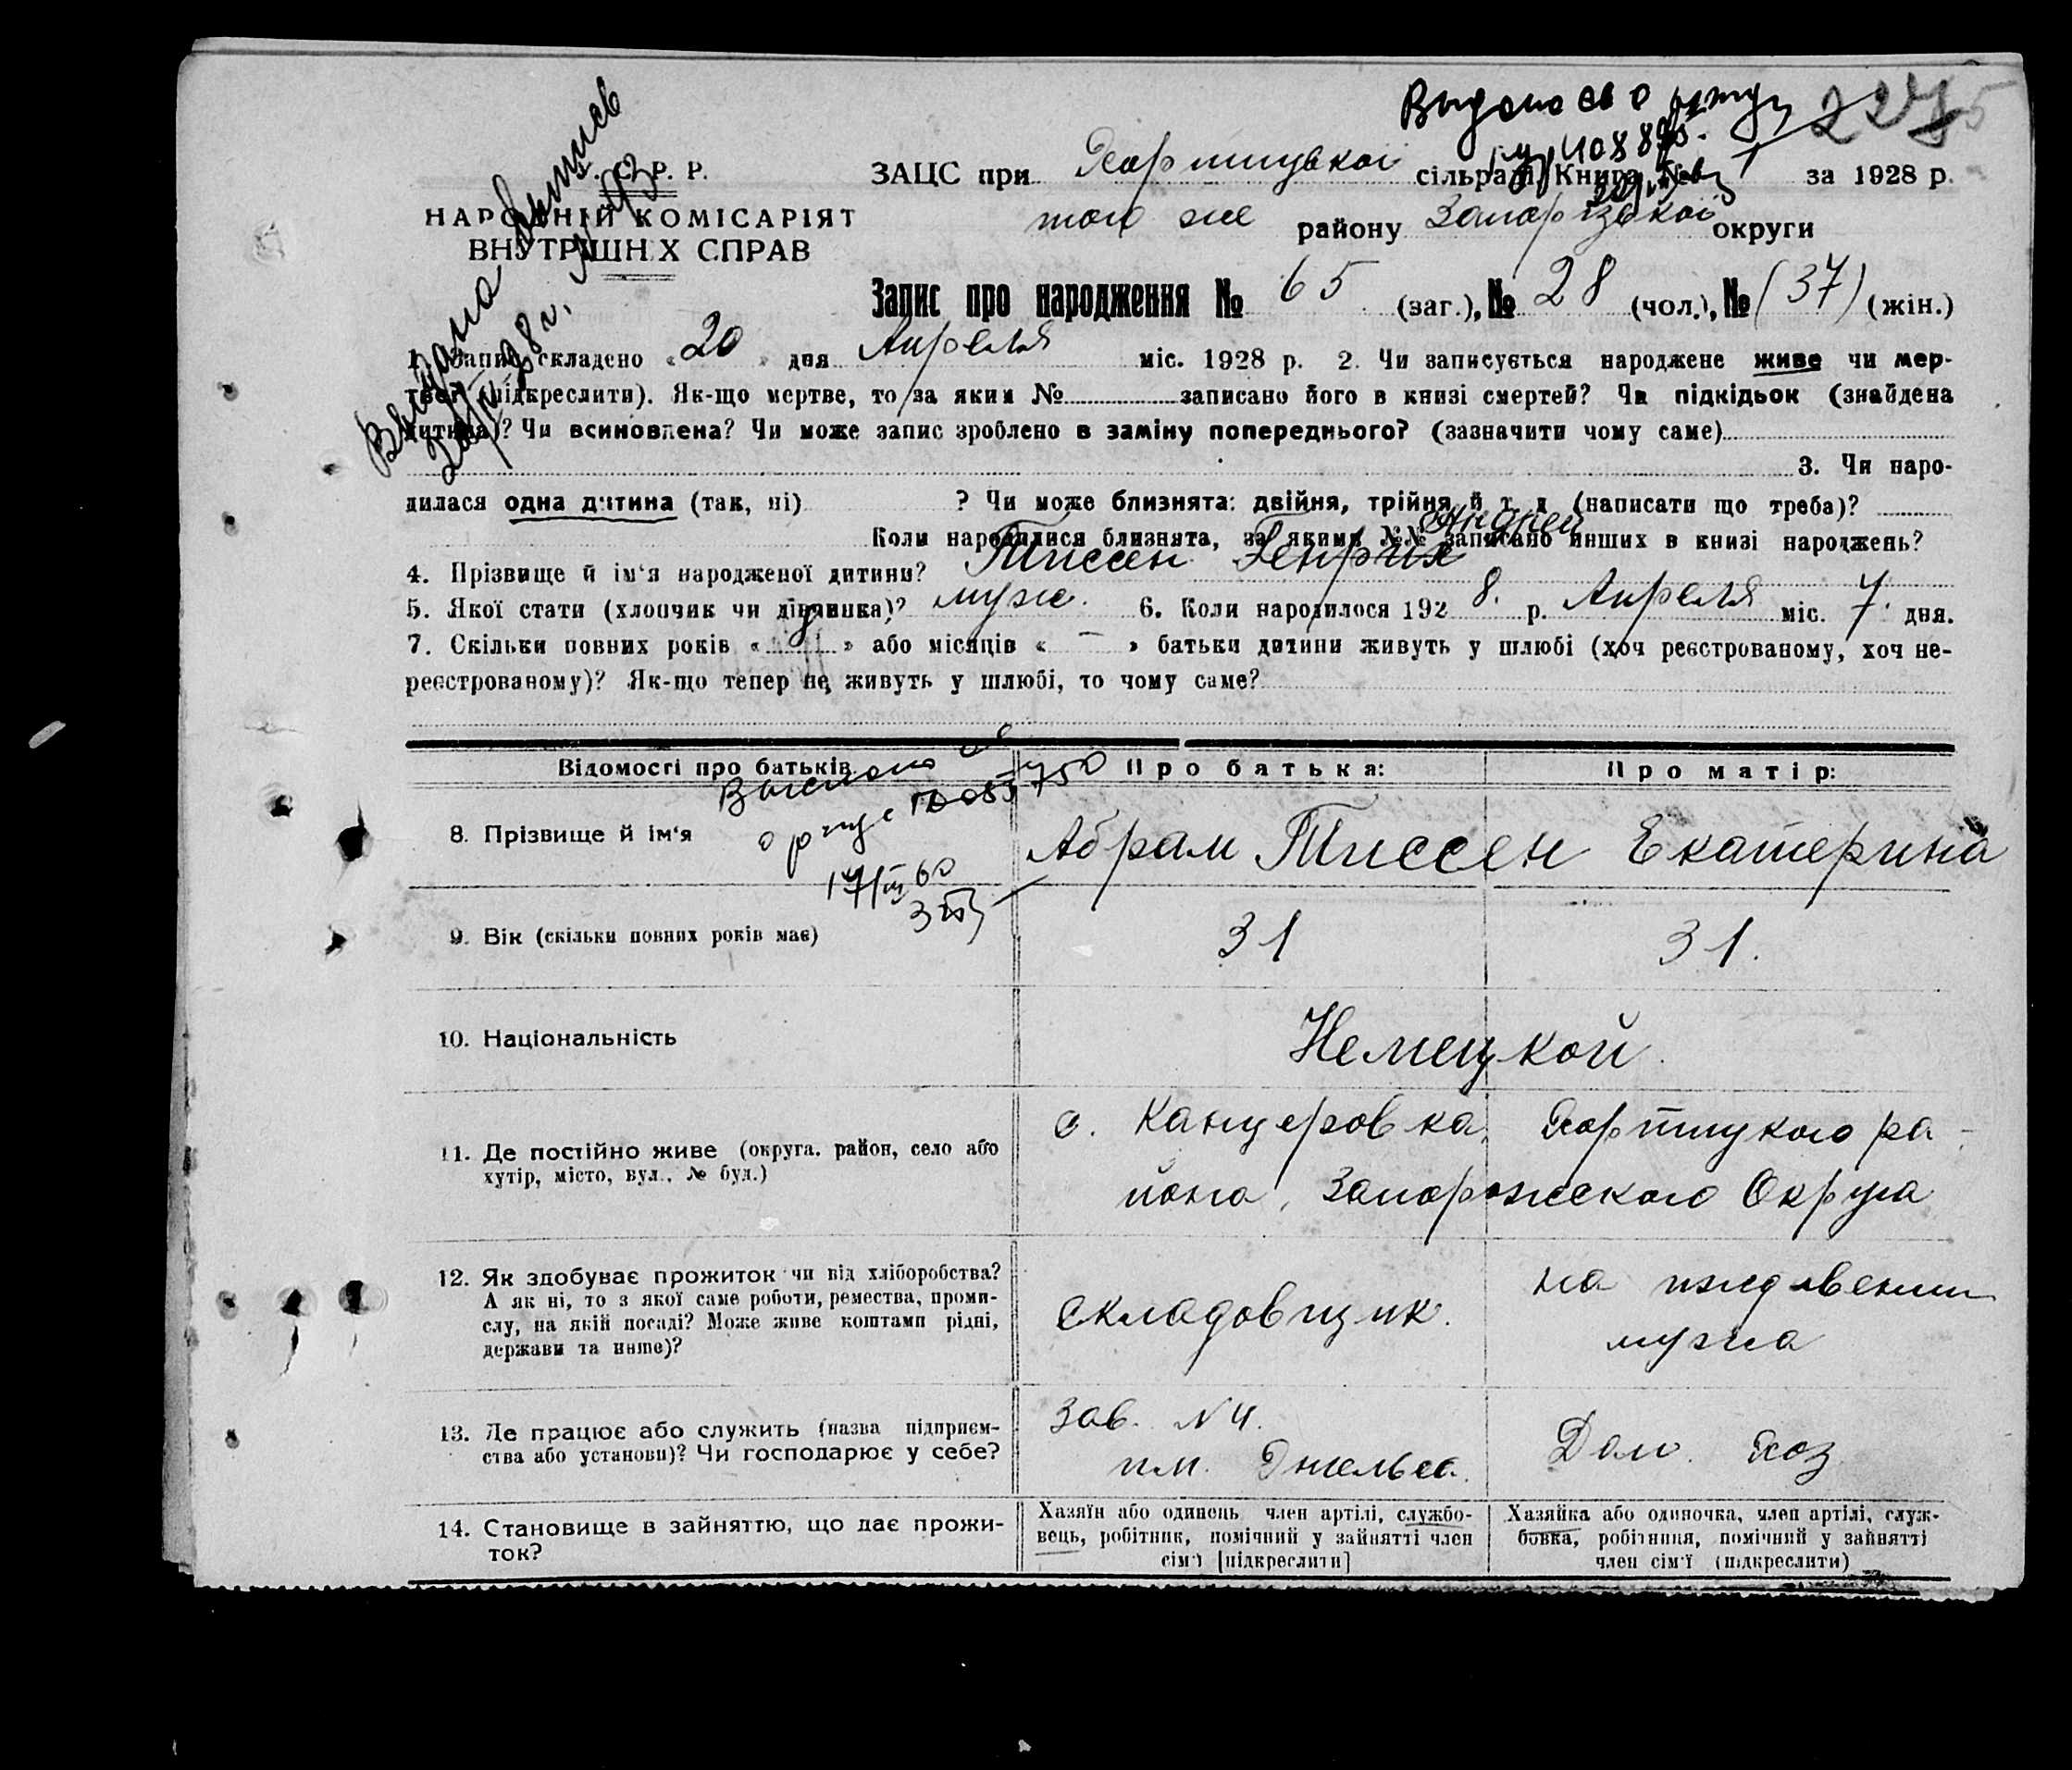 227
ЗАЦС при Хортицької сільради Книга № 1 за 1928 р.
НАРОДНІЙ КОМІСАРІЯТ
ВНУТРІШНІХ СПРАВ
того же району Запорізької округи
Запис про народження № 65 (заг.), № 28 (чол.), № (37) (жін.)
1. Запис складено «20» дня Апреля міс. 1928 р. 2. Чи записується народжене живе чи мер-
тве? (підкреслити). Як-що мертве, то за яким № записано його в книзі смертей? Чи підкідьок (знайдена
дитина)? Чи всиновлена? Чи може запис зроблено в заміну попереднього? (зазначити чому саме)
3. Чи наро-
дилася одна дитина (так, ні) ? Чи може близнята: двійня, трійня й т. д (написати що треба)?
Коли народилися близнята, за якими №№ записано инших в книзі народжень?
Андрей
4. Прізвище й ім'я народженої дитини? Тиссен Генрих
5. Якої стати (хлопчик чи дівчинка)? муж. 6. Коли народилося 1928. р. Апреля міс. 7. дня.
7. Скільки повних років « » або місяців « – » батьки дитини живуть у шлюбі (хоч реєстрованому, хоч не-
реєстрованому)? Як-що тепер не живуть у шлюбі, то чому саме?
Відомості про батьків Про батька: Про матір:
8. Прізвище й ім'я Абрам Тиссен Екатерина
17/III 60
9. Вік (скільки повних років має) 31 31.
10. Національність Немецкой.
11. Де постійно живе (округа. район, село або
хутір, місто, вул., № буд.)
с. Канцеровка, Хортицкого ра-
йона, Запорожского Округа
12. Як здобуває прожиток чи від хліборобства?
А як ні, то з якої саме роботи, ремества, проми-
слу, на якій посаді? Може живе коштами рідні,
держави та инше)?
складовщик.
на иждивении
мужа
13. Де працює або служить (назва підприєм-
ства або установи)? Чи господарює у себе?
Зав. N 4.
им. Энгельса.
Дом. хоз
14. Становище в зайняттю, що дає прожи-
ток?
Хазяїн або одинець член артілі, службо-
вець, робітник, помічний у зайнятті член
сім'ї [підкреслити]
Хазяйка або одиночка, член артілі, служ-
бовка, робітниця, помічний у зайнятті
член сім'ї (підкреслити)